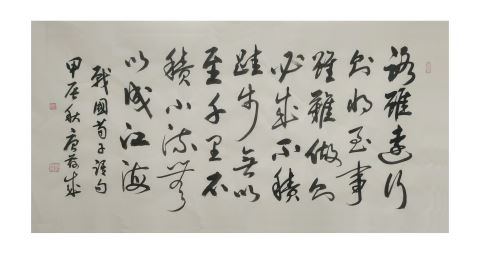 路雖遠行
則將至事
雖難做則
必成不積
跬步無以
至千里不
積小流無
以成江海
戰國荀子語句
甲辰秋